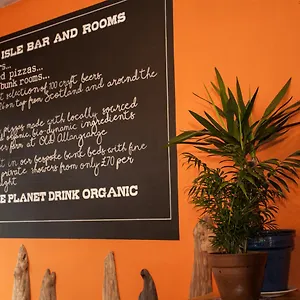 ISLE BAR AND ROOMS
pizzas...
bunk rooms...
selection of 100 craft beers
on tap from Scotland and around the
pizzas made with locally sourced
organic, bio-dynamic ingredients
farm at Old Allangrange
in our bespoke bunk beds with fine
private showers from only £70 per
night
PLANET DRINK ORGANIC